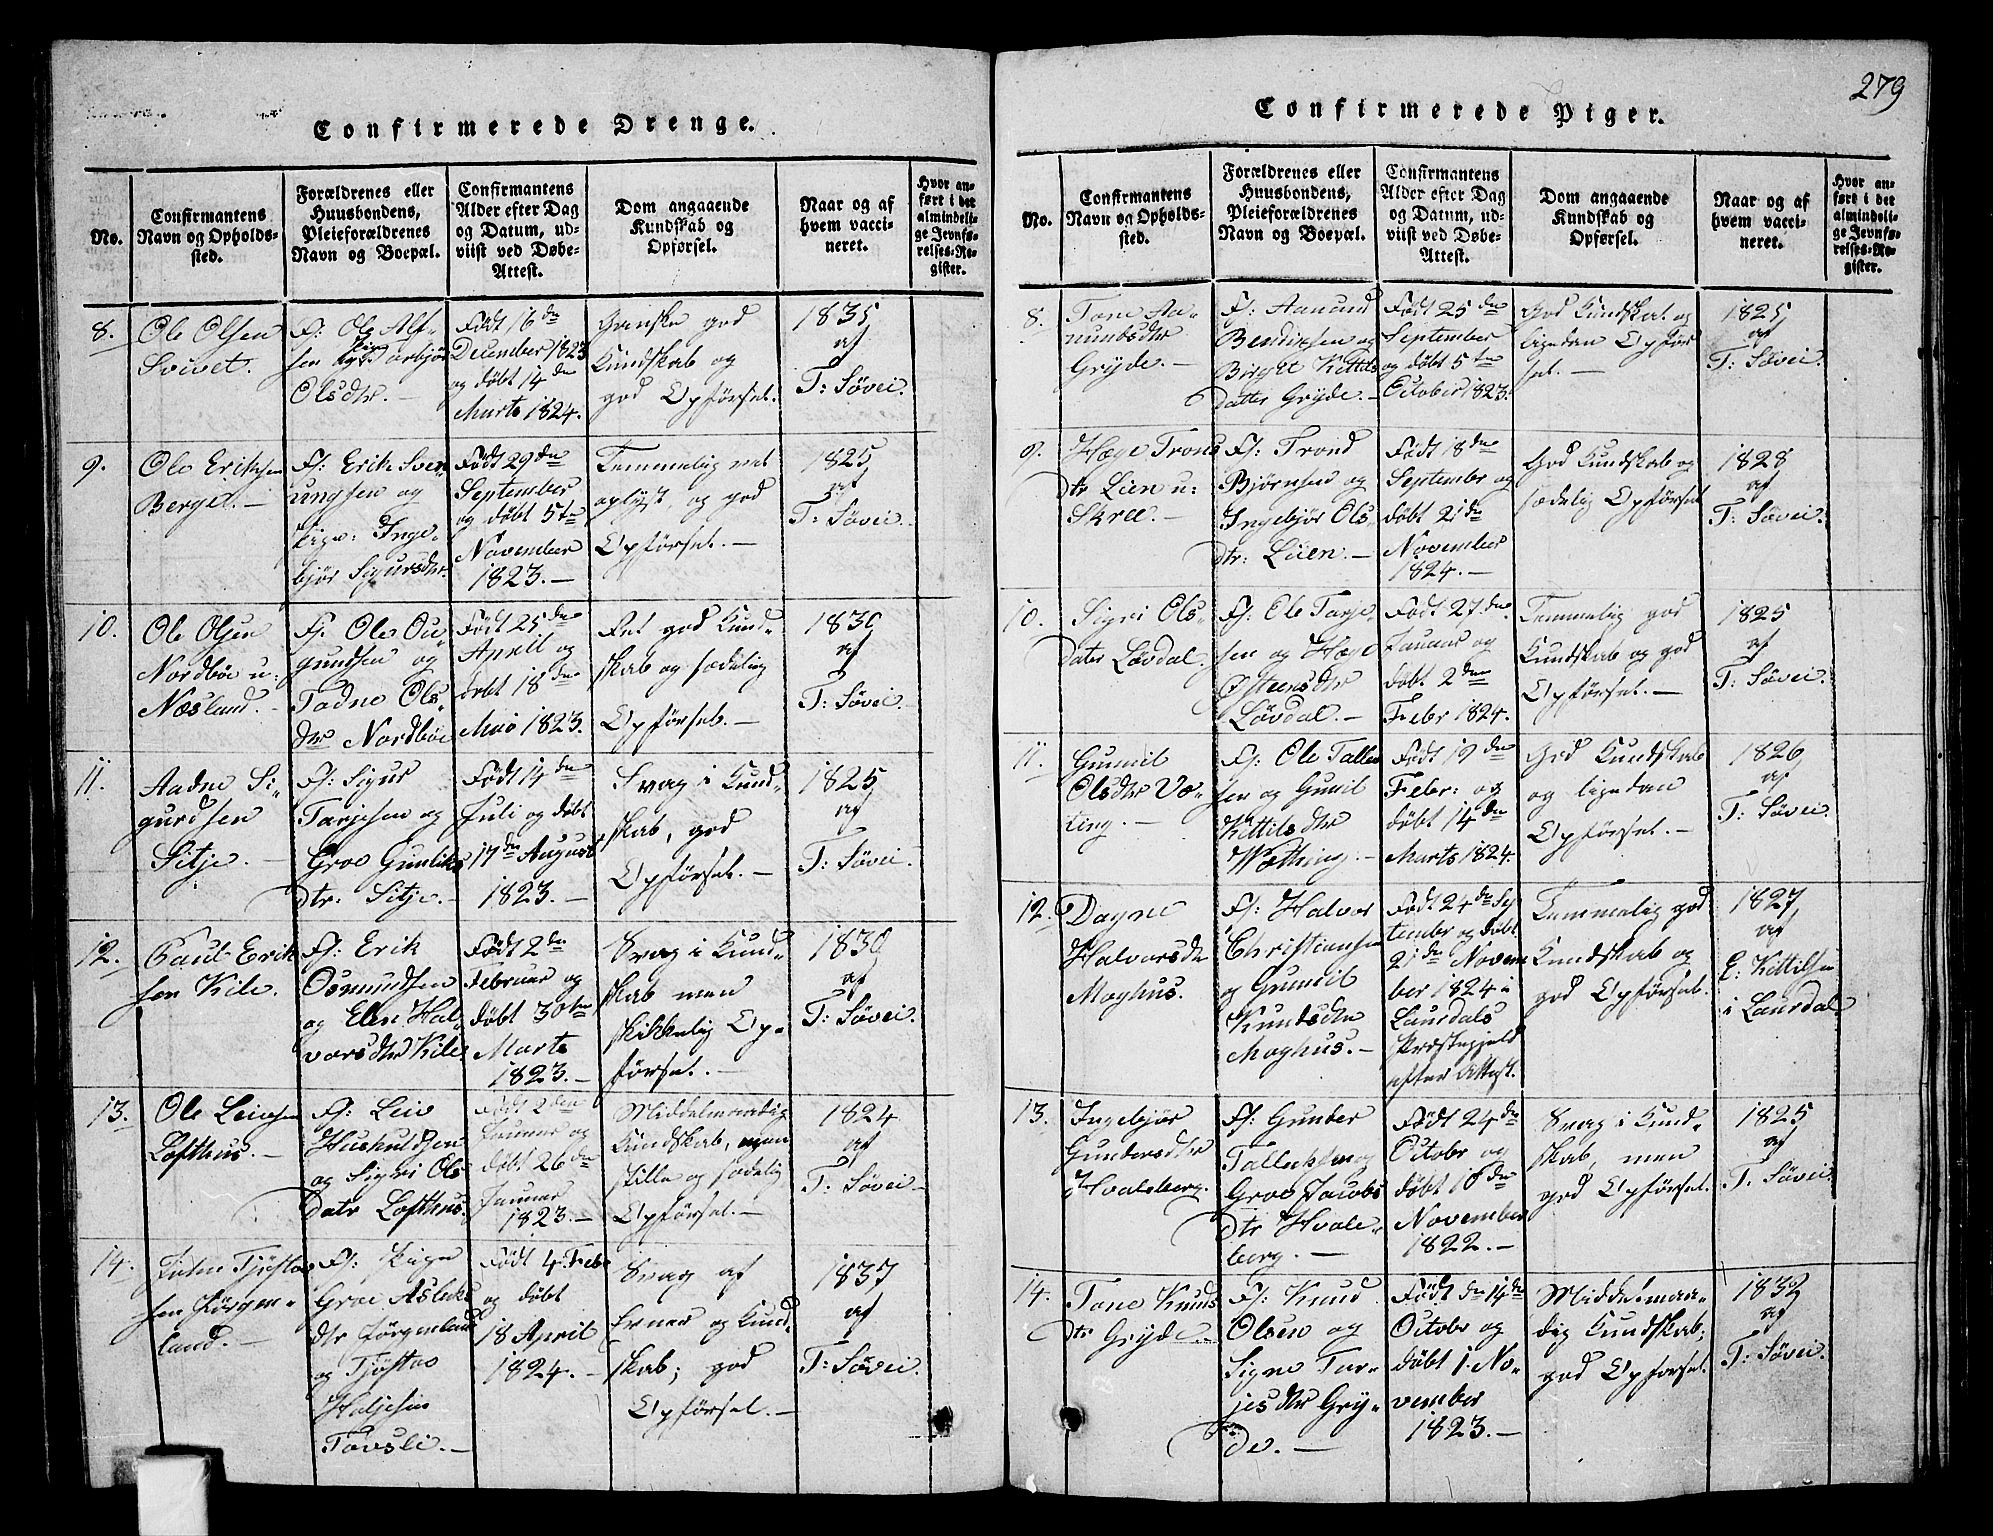 Confirmerede Drenge.
No.
Confirmantens
Navn og Opholds-
sted.
Forældrenes eller
Huusbondens,
Pleieforældrenes
Navn og Boepæl.
Confirmantens
Alder efter Dag
og Datum, ud-
viist ved Døbe-
Attest.
Dom angaaende
Kundskab og
Opførsel.
Naar og af
hvem vacci-
neret.
Hvor an-
ført i det
almindeli-
ge Jevnfø-
relses-Re-
gister.
8.
Ole Olsen
Svivet.
F: Ole Alf-
sen
Olsdtr.
Født 16de
December 1823
og døbt 14de
Marts 1824.
Ganske god
Kundskab og
god Opførsel.
1835
af
T: Søvei.
9.
Ole Eriksen
Berget.
F: Erik Sven
ungsen og
Pige: Inge-
bjør Sigursdtr.
Født 29de
September
og døbt 5te
November
1823.
Temmelig vel
oplyst, og god
Opførsel.
1825
af
T: Søvei.
10.
Ole Olsen
Nordbøe u:
Næsland.
F: Ole Ou-
gundsen og
Tadne Ols-
dtr Nordbøe
Født 25de
April og
døbt 18de
Mai 1823.
Ret god Kund-
skab og sædelig
Opførsel.
1830
af
T: Søvei.
11.
Aadne Si-
gurdsen
Sitje.
F: Sigur
Tarjesen og
Groe Gunliks
dtr: Sitje.
Født 14de
Juli og døbt
17de August
1823.
Svag i Kund-
skab, god
Opførsel.
1825
af
T: Søvei.
12.
Paul Erik
sen Kile.
F: Erik
Osmundsen
og Elen Hal-
vorsdtr Kile
Født 2de
Februar og
døbt 30te
Marts
1823.
Svag i Kund-
skab men
skikkelig Op-
førsel.
1830
af
T: Søvei.
13.
Ole Leivsen
Lofthus.
F: Leiv
Huskuldsen
og Signi Ols
Datr Lofthus.
Født 2den
Januar og
døbt 26de
Januar
1823.
Middelmaadig
Kundskab, men
stille og sædelig
Opførsel.
1824
af
T: Søvei.
14.
Tjøstov
sen Jørgen-
land.
F: Pige
Groe Asleks
dtr Jørgenland
og Tjøstov
Haljesen
Tovsli.
Født 4. Febr
og døbt
18 April
1824.
Svag af
Evner og Kund-
skab; god
Opførsel.
1837
af
T: Søvei.
279
Confirmerede Piger.
No.
Confirmantens
Navn og Opholds-
sted.
Forældrenes eller
Huusbondens,
Pleieforældrenes
Navn og Boepæl.
Confirmantens
Alder efter Dag
og Datum, ud-
viist ved Døbe-
Attest.
Dom angaaende
Kundskab og
Opførsel.
Naar og af
hvem vacci-
neret.
Hvor an-
ført i det
almindeli-
ge Jevnfø-
relses-Re-
gister.
8.
Tone Aa-
nundsdtr
Grÿde.
F: Aanund
Bendixsen og
Birgit Kittils
datter Grÿde.
Født 25de
September
og døbt 5te
October 1823.
God Kundskab og
ligedan Opfør
sel.
1825
af
T: Søvei.
9.
Hæge Trons
dtr Lien u:
Skree.
F: Trond
Bjørnsen og
Ingebjør Ols
dtr: Liien.
Født 18de
Septembr og
døbt 21de
November
1824.
God Kundskab og
sædelig Opførsel
1828
af
T: Søvei.
10.
Signi Ols-
dater Løvdal.
F: Ole Tarje
sen og Hæge
Østeensdtr
Løvdal.
Født 27de
Januar og
døbt 2den
Febr 1824.
Temmelig god
Kundskab og god
Opførsel.
1825
af
T: Søvei.
11.
Gunnil
Olsdtr Væ-
ting.
F: Ole Talleu
sen og Gunil
Kittilsdtr
Wæthing.
Født 19de
Febr: og
døbt 14de
Marts 1824.
God Kundskab
og ligedan
Opførsel.
1826
af
T: Søvei.
12.
Dagne
Halvorsdtr
Moghus.
F: Halvor
Christiansen
og Gunnil
Knudsdtr
Moghus.
Født 24de Sep
tember og døbt
21de Novem
ber 1824 i
Laurdals
Præstegjeld
efter Attest.
Temmelig god
Kundskab og
god Opførsel.
1827
af
E: Kittilsen
i Laurdal
13.
Ingebjør
Gundersdtr
Hvaleberg.
F: Gunder
Talleksen og
Groe Jacobs
dtr Hvale-
berg.
Født 24de
Octobr og
døbt 10de
November
1822.
Svag i Kund-
skab, men
god Opførsel.
1825
af
T. Søvei.
14.
Tone Knuds
dtr Grÿde.
F: Knud
Olsen og
Signe Tar-
jesdtr Grÿ-
de.
Født den 14de
Octobr og
døbt 1. No-
vember
1823.
Middelmaa-
dig Kundskab;
god Opførsel.
1832
af
T: Søvei.